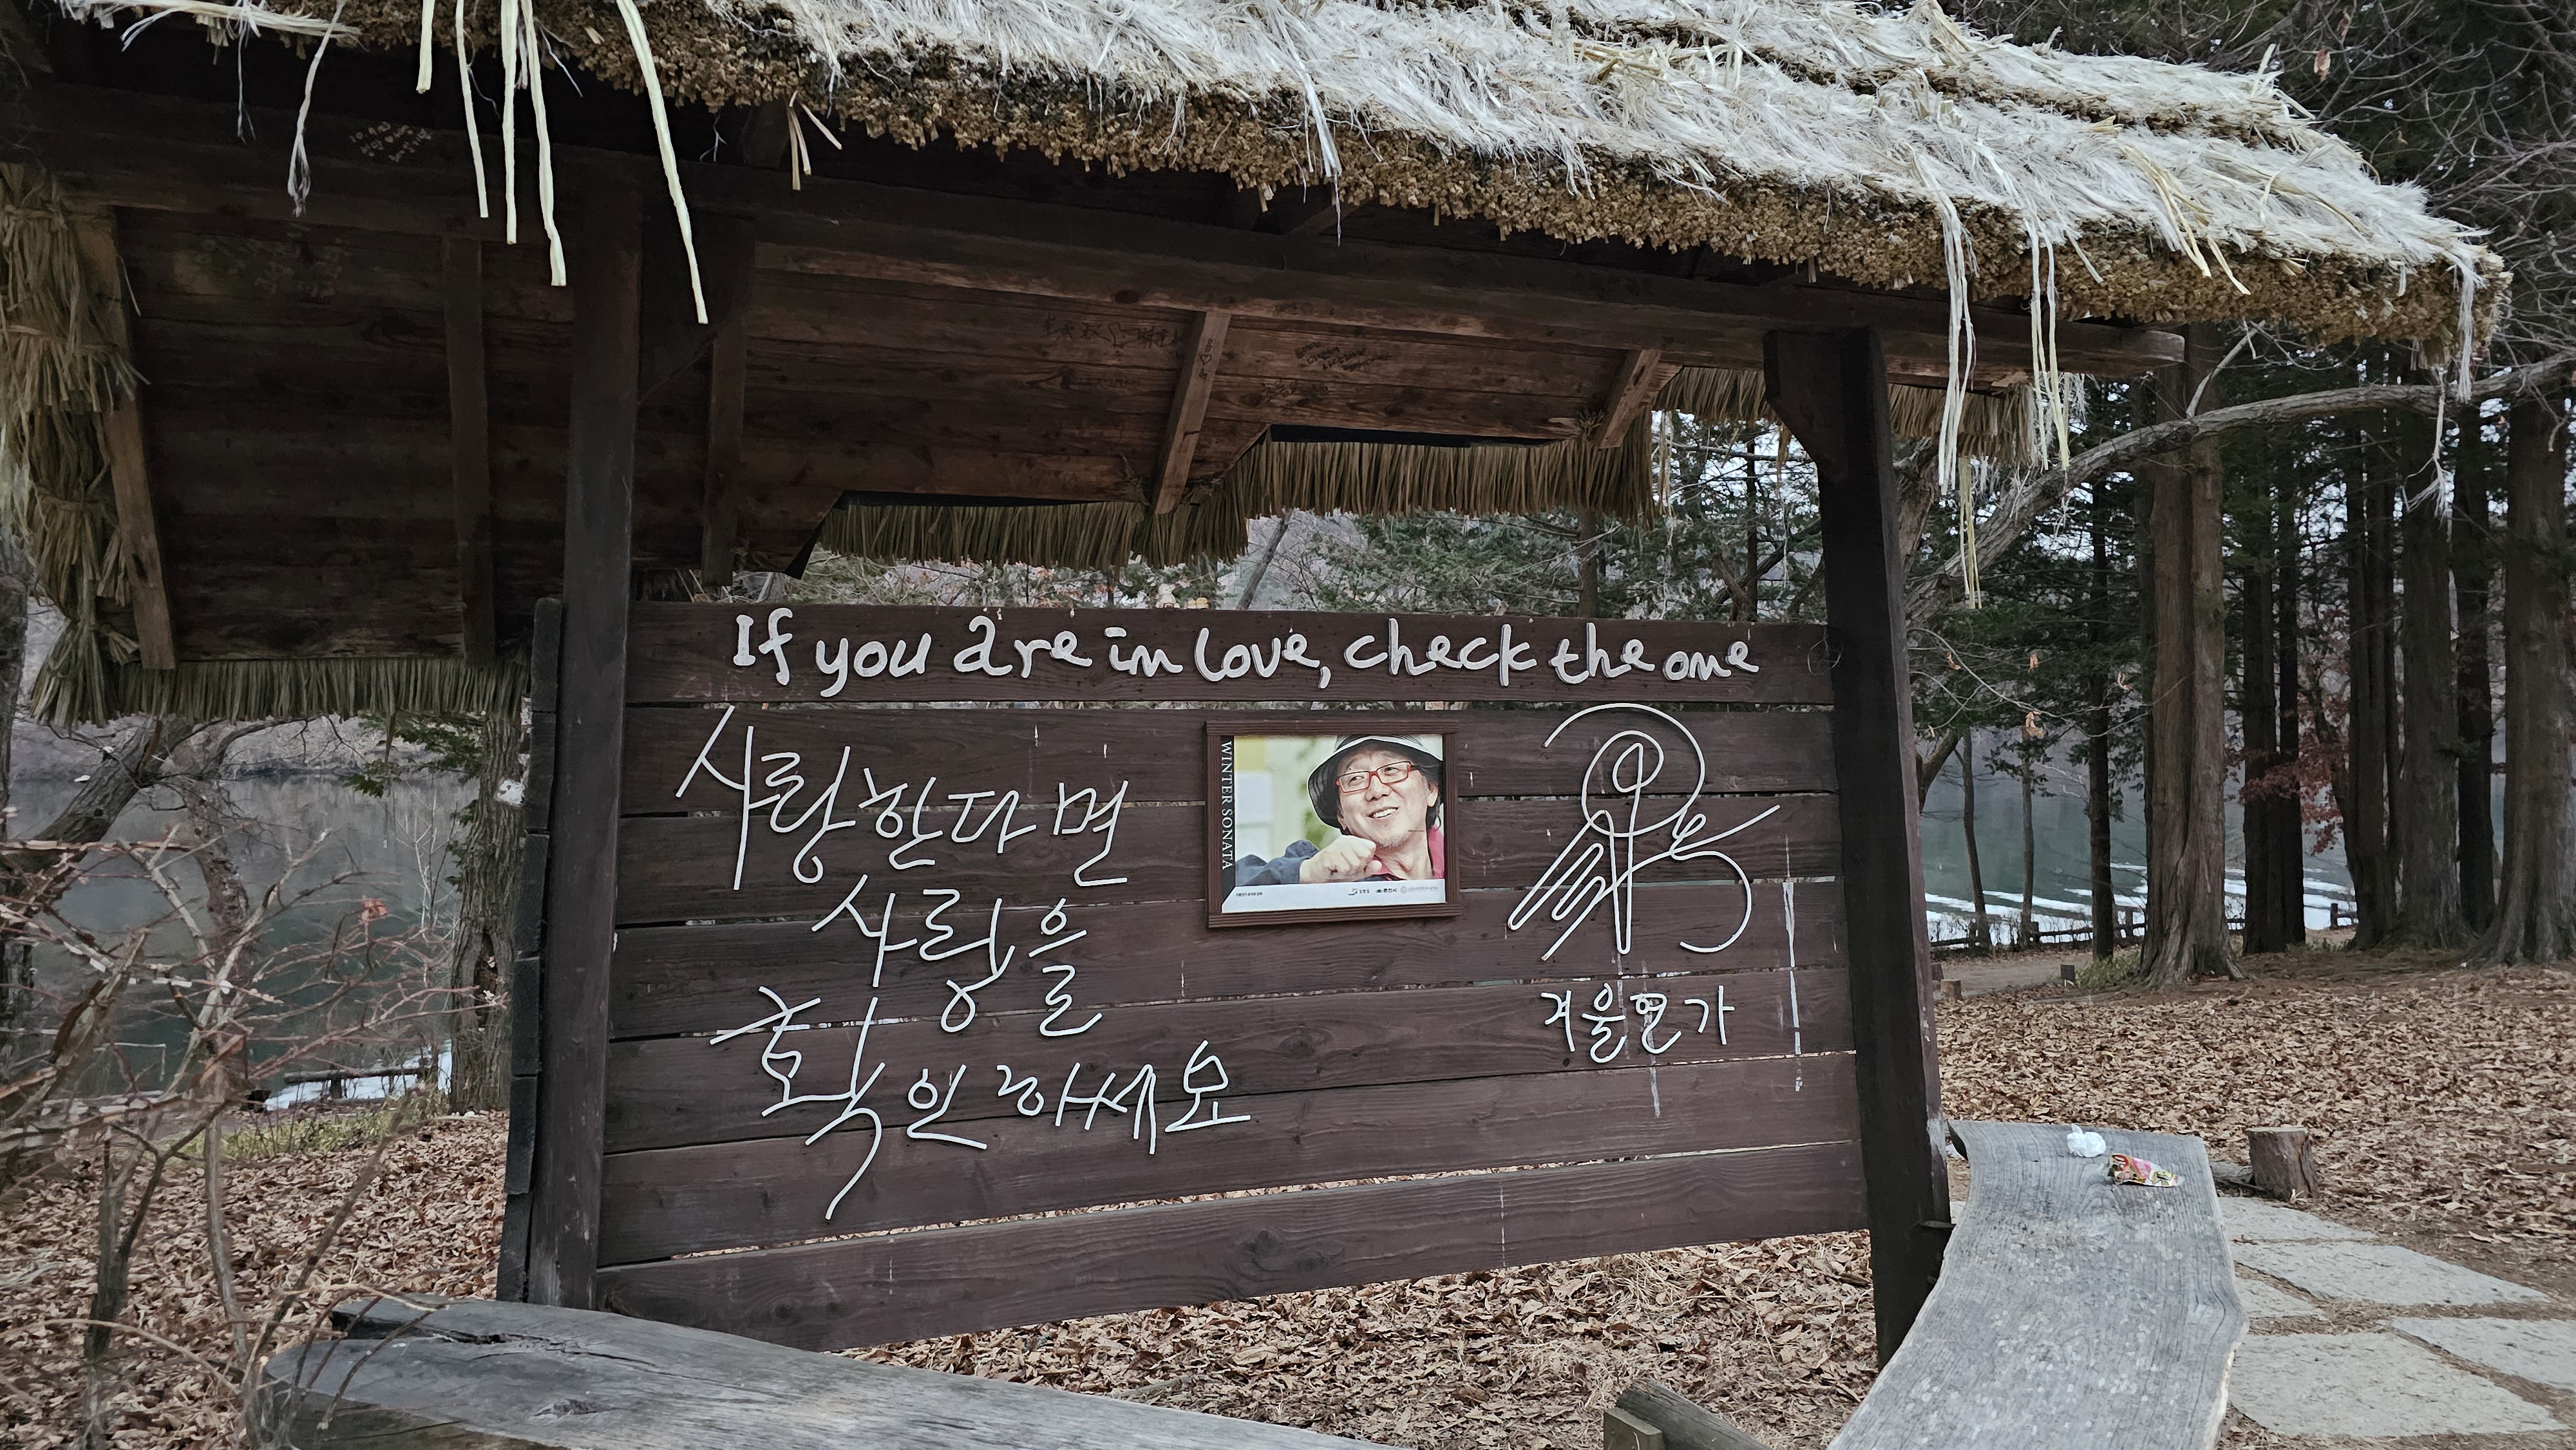 If you are in love, check the one
사랑한다면
사랑을
확인하세요
WINTER SONATA
겨울연가